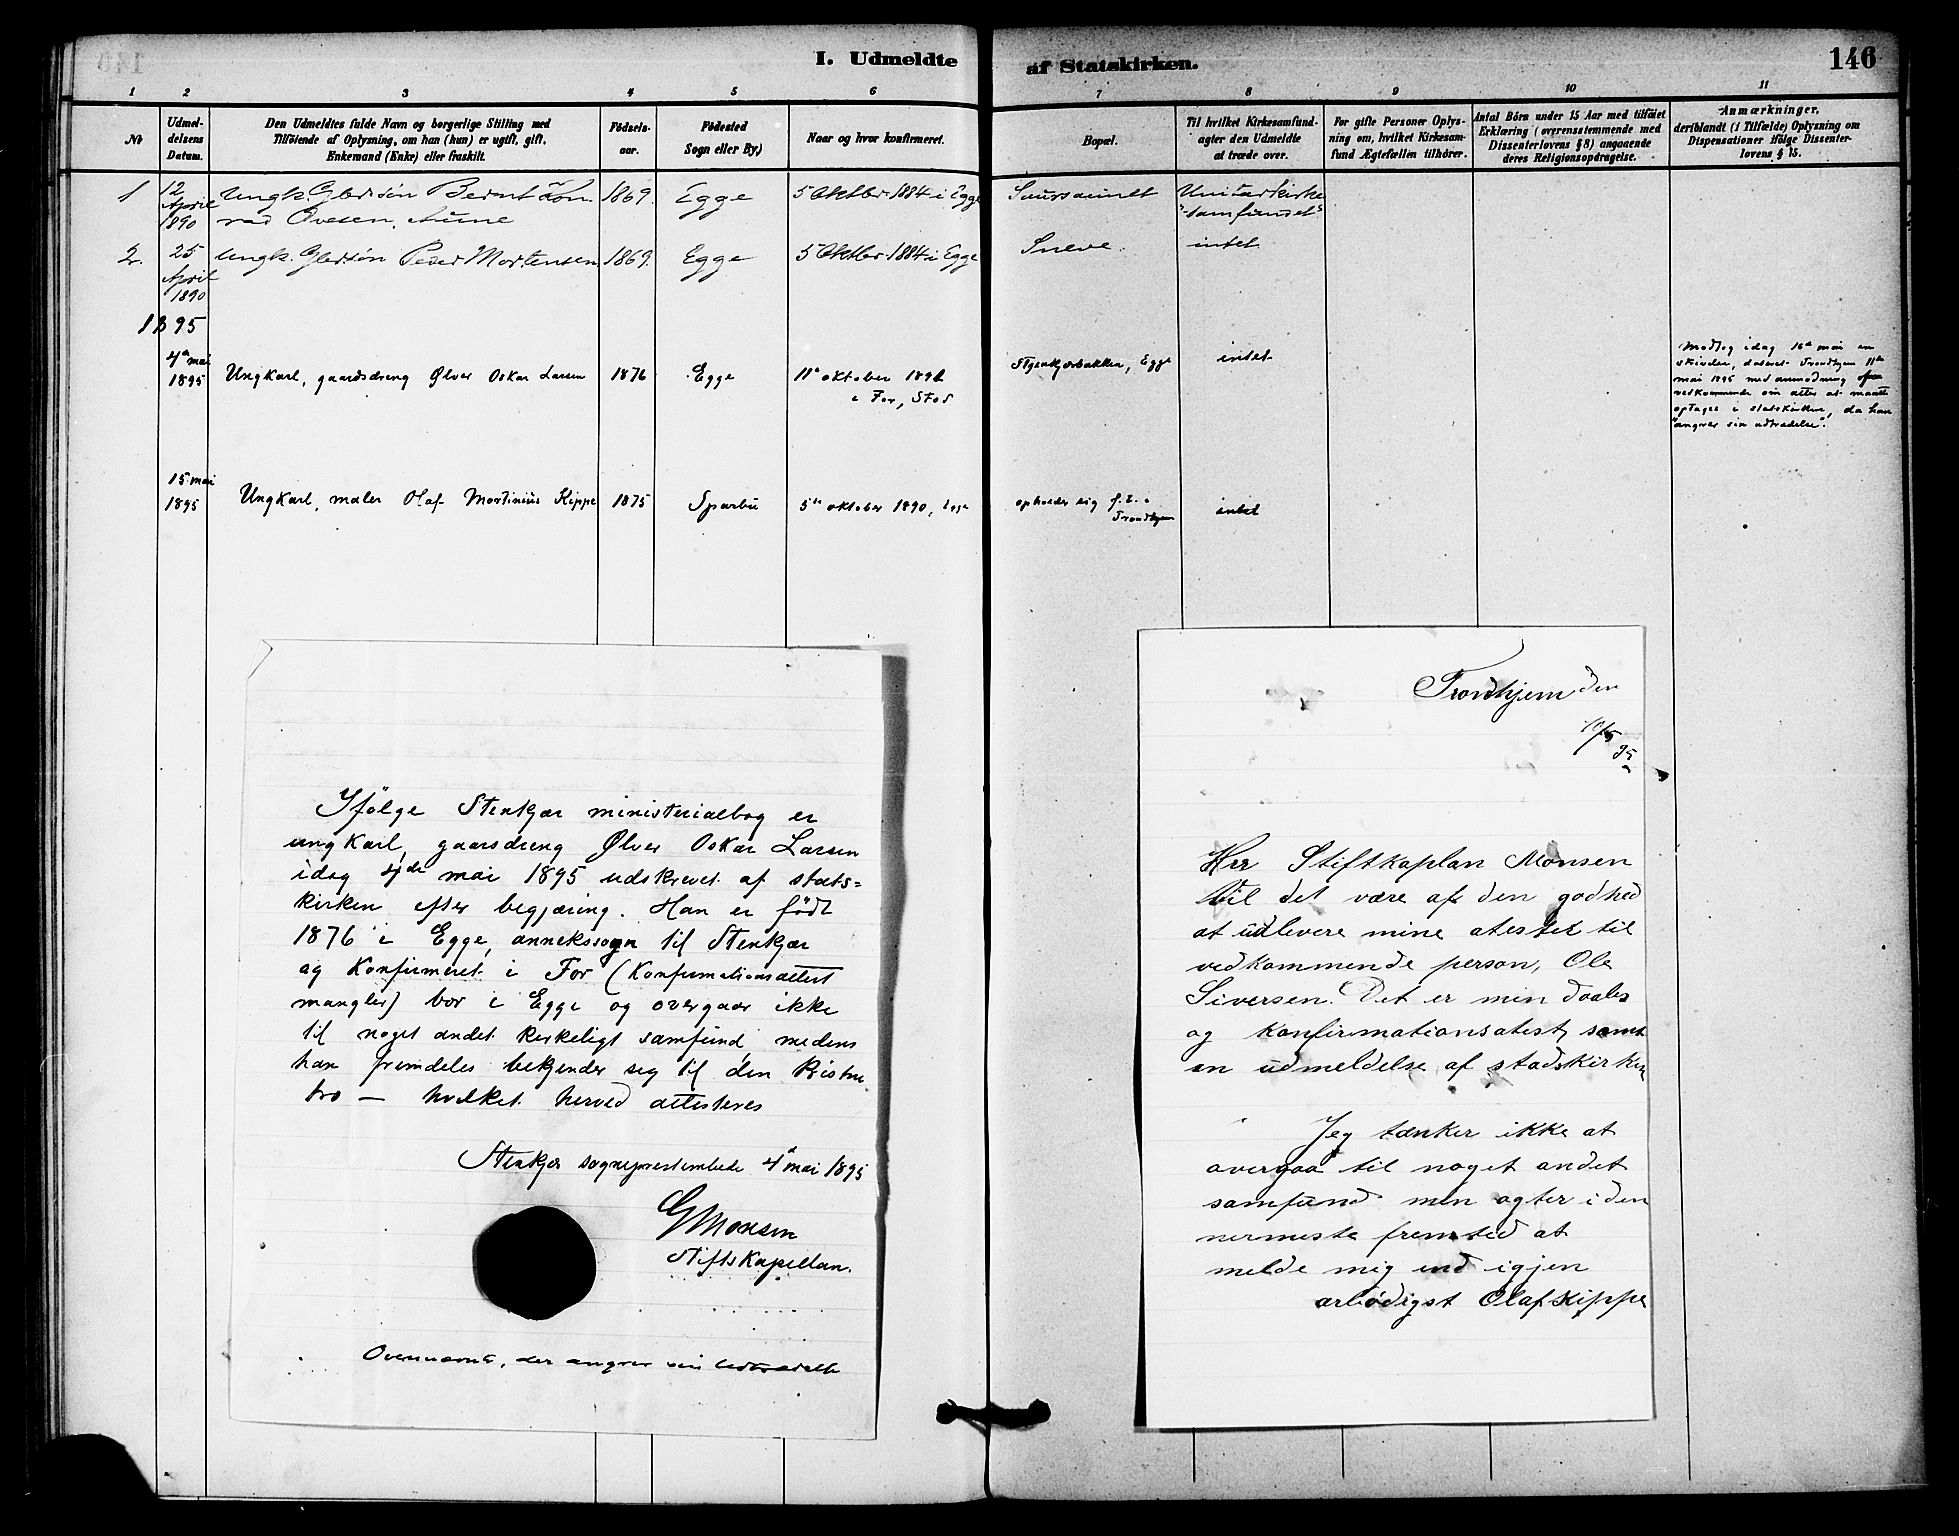 I. Udmeldte af Statskirken.
146
1 2 3 4 5 6 7 8 9 10 11
№
Udmel-
delsens
Datum.
Den Udmeldtes fulde Navn og borgerlige Stilling med
Tilföiende af Oplysning, om han (hun) er ugift, gift,
Enkemand (Enke) eller fraskilt.
Födsels-
aar.
Födested
Sogn eller By.)
Naar og hvor konfirmeret.
Bopæl.
Til hvilket Kirkesamfund-
agter den Udmeldte
at træde over.
For gifte Personer Oplys-
ning om, hvilket Kirkesam-
fund Ægtefællen tilhörer.
Antal Börn under 15 Aar med tilföiet
Erklæring (overensstemmende med
Dissenterlovens § 8) angaaende
deres Religionsopdragelse.
Anmærkninger,
deriblandt (i Tilfælde) Oplysning om
Dispensationer ifölge Dissenter-
lovens § 15.
1 12 Ungk. Gbrdsön Bernt Kon- 1869. Egge 5 Oktbr 1884 i Egge Unitarkirke
April rad Ovesen, Aune "samfundet"
1890
2. 25 Ungk. Gbrdsön Peder Mortensen 1869. Egge 5 Oktbr 1884 i Egge Sneve. intet
April
1890
1895
4de mai
1895 Ungkarl, gaardsdreng Ølver Oskar Larsen 1876 Egge 11te oktober 1891 Stenkjærbakken, Egge intet
i For, Stod
Modtog idag 16de mai en
skrivelse, dateret Trondhjem 11te
mai 1895 med anmodning fra
vedkommende om atter at maatte
optages i statskirken, da han
"angrer sin udtrædelse".
15 mai
1895 Ungkarl, maler Olaf Martinius Kippe 1875 Sparbu 5te oktober 1890, Egge opholder sig f. t. i intet
Trondhjem
Ifølge Stenkjær ministerialbog er
ungkarl, gaarsdreng Ølver Oskar Larsen
idag 4de mai 1895 udskrevet af stats=
kirken efter begjæring. Han er født
1876 i Egge, annekssogn til Stenkjær
og konfirmeret i For (konfirmationsattest
mangler) bor i Egge og overgaar ikke
til noget andet kirkeligt samfund medens
han fremdeles bekjender sig til den kristne
tro — hvilket herved attesteres
Stenkjær sogneprestembede 4de mai 1895
G Monsen
Stiftskapellan.
Ovennævnte, der angrer sin udtrædelse
Trondhjem den
10/5 95
Herr Stiftkaplan Monsen
Vil det være af den godhed
at udlevere mine atester til
vedkommende person, Ole
Siversen. Det er min daabs
og konfirmationsatest, samt
en udmeldelse af stadskirken
Jeg tænker ikke at
overgaa til noget andet
samfund men agter i den
nermeste fremtid at
melde mig ind igjen
ærbødigst Olaf Kippe